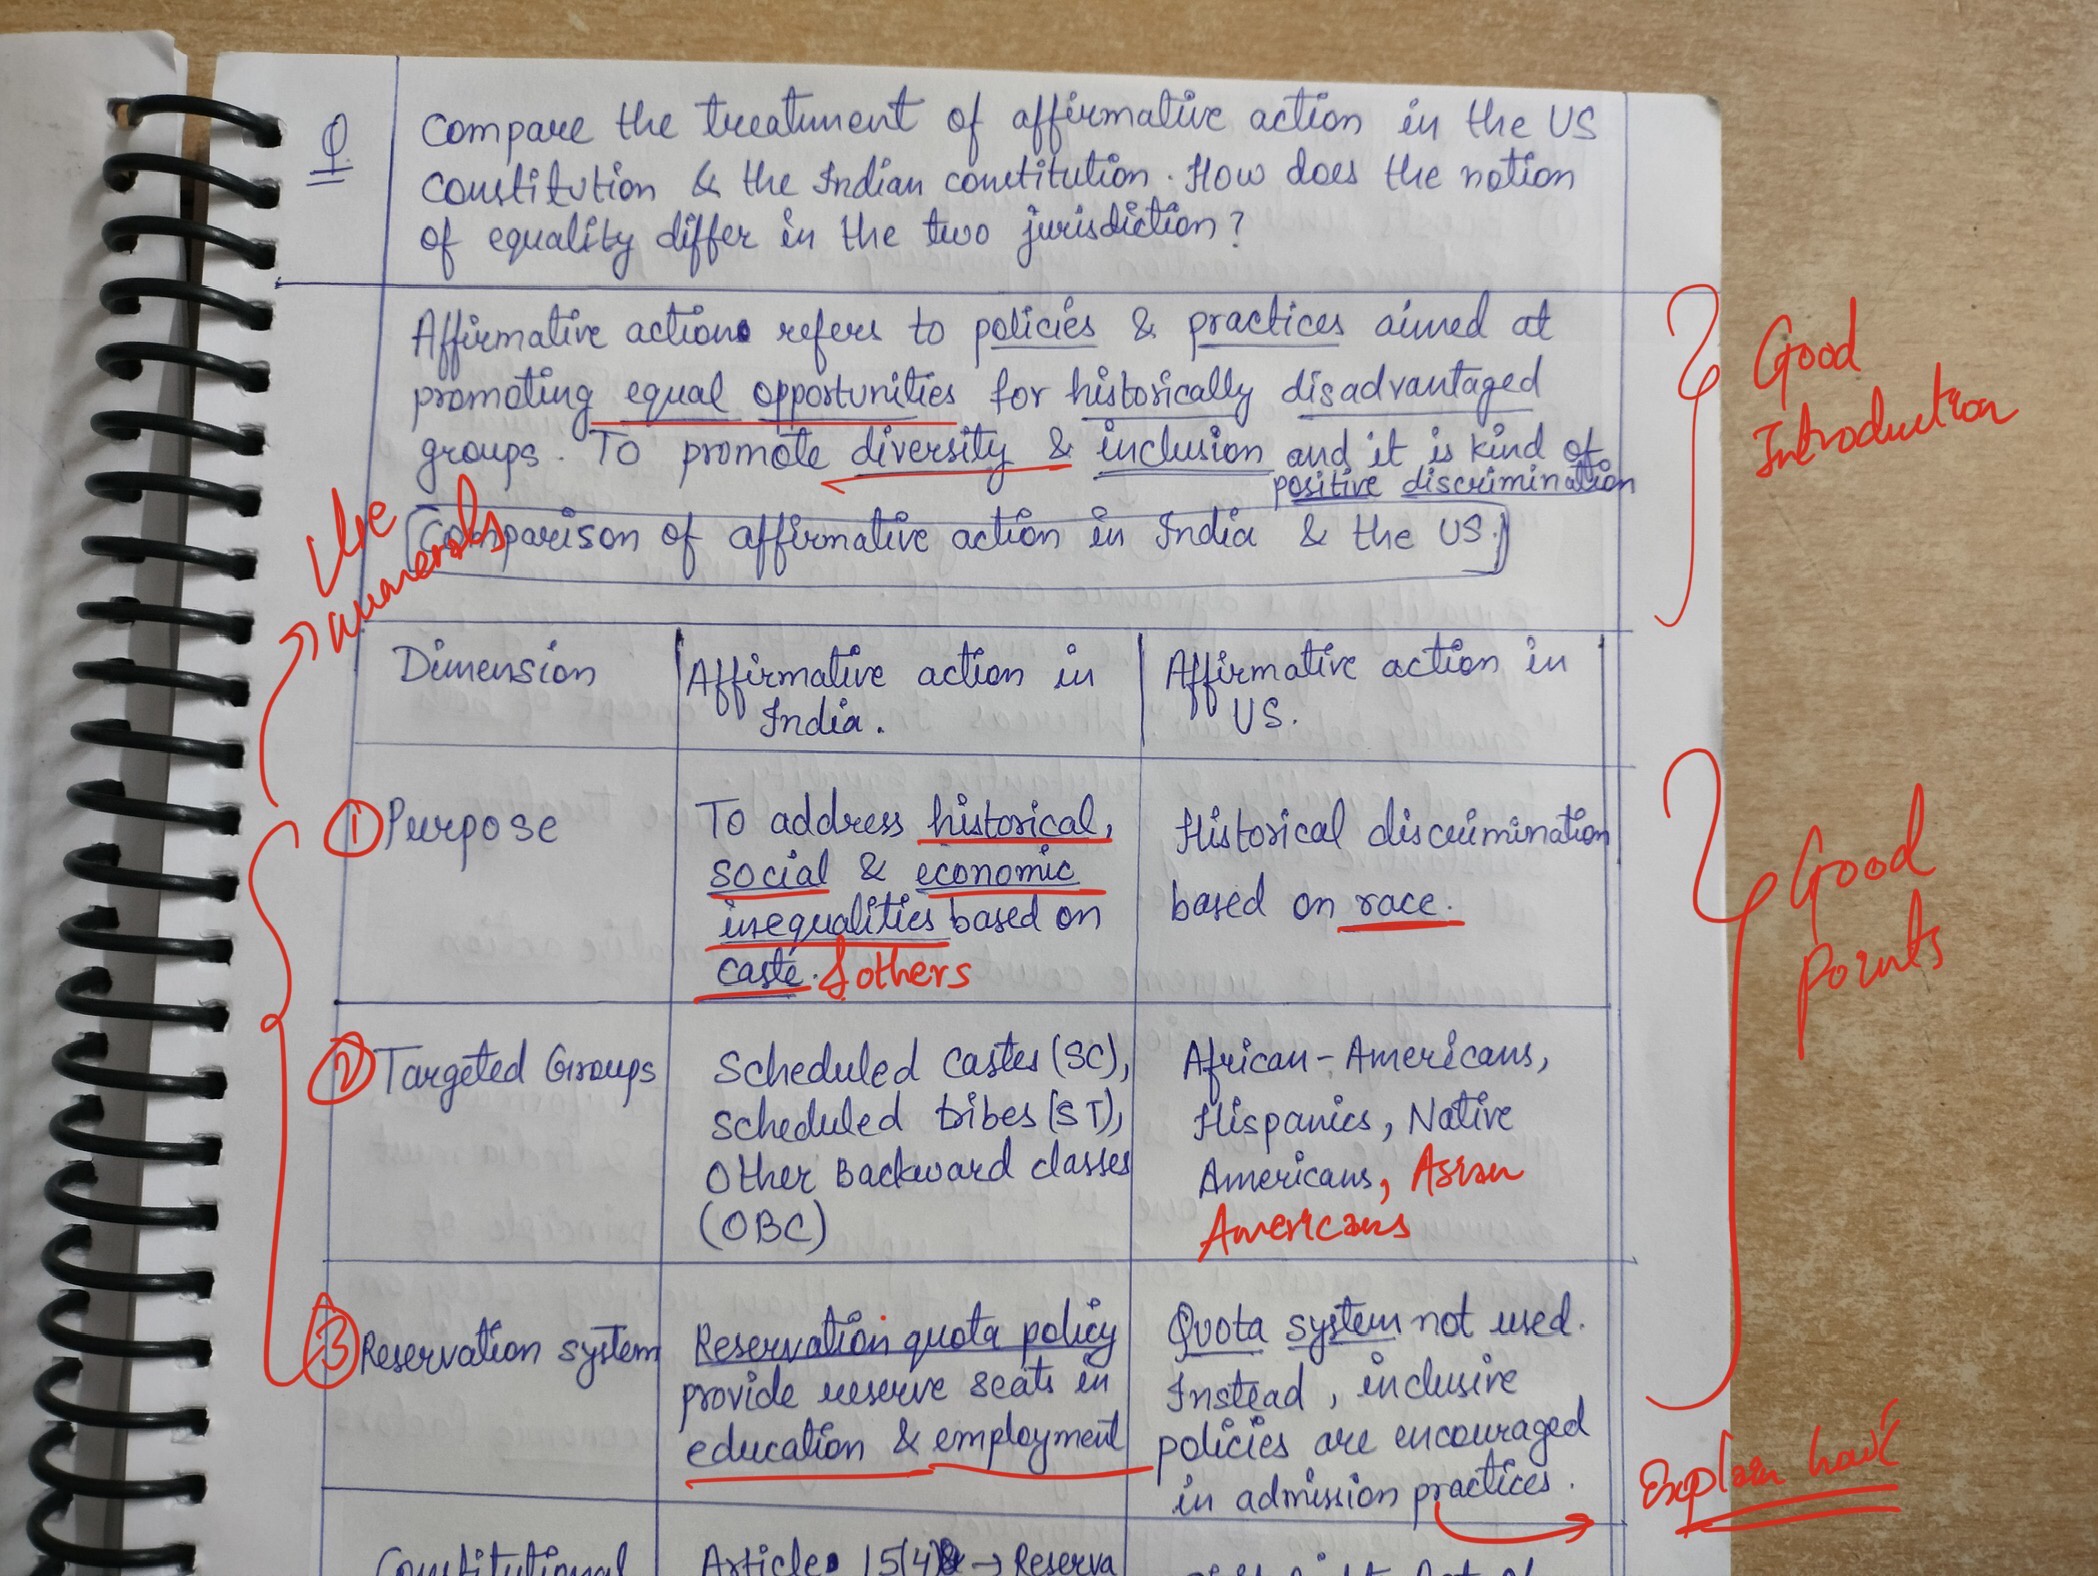 Q
Compare the treatment of affirmative action in the US
Constitution & the Indian constitution. How does the notion
of equality differ in the two jurisdiction?
Affirmative action refers to policies & practices aimed at
promoting equal opportunities for historically disadvantaged
groups. To promote diversity & inclusion and it is kind of
positive discrimination
Good
Introduction
Use
numerals
Comparison of affirmative action in India & the US.
Dimension
Affirmative action in
India.
Affirmative action in
US.
1 Purpose
To address historical,
social & economic
inequalities based on
caste. & others
Historical discrimination
based on race.
Good
points
2 Targeted Groups
Scheduled castes (SC),
Scheduled tribes (ST),
Other Backward classes
(OBC)
African-Americans,
Hispanics, Native
Americans, Asian
Americans
3 Reservation system
Reservation quota policy
provide reserve seats in
education & employment
Quota system not used.
Instead, inclusive
policies are encouraged
in admission practices.
Explain how?
Constitutional
Article 15(4) → Reserva